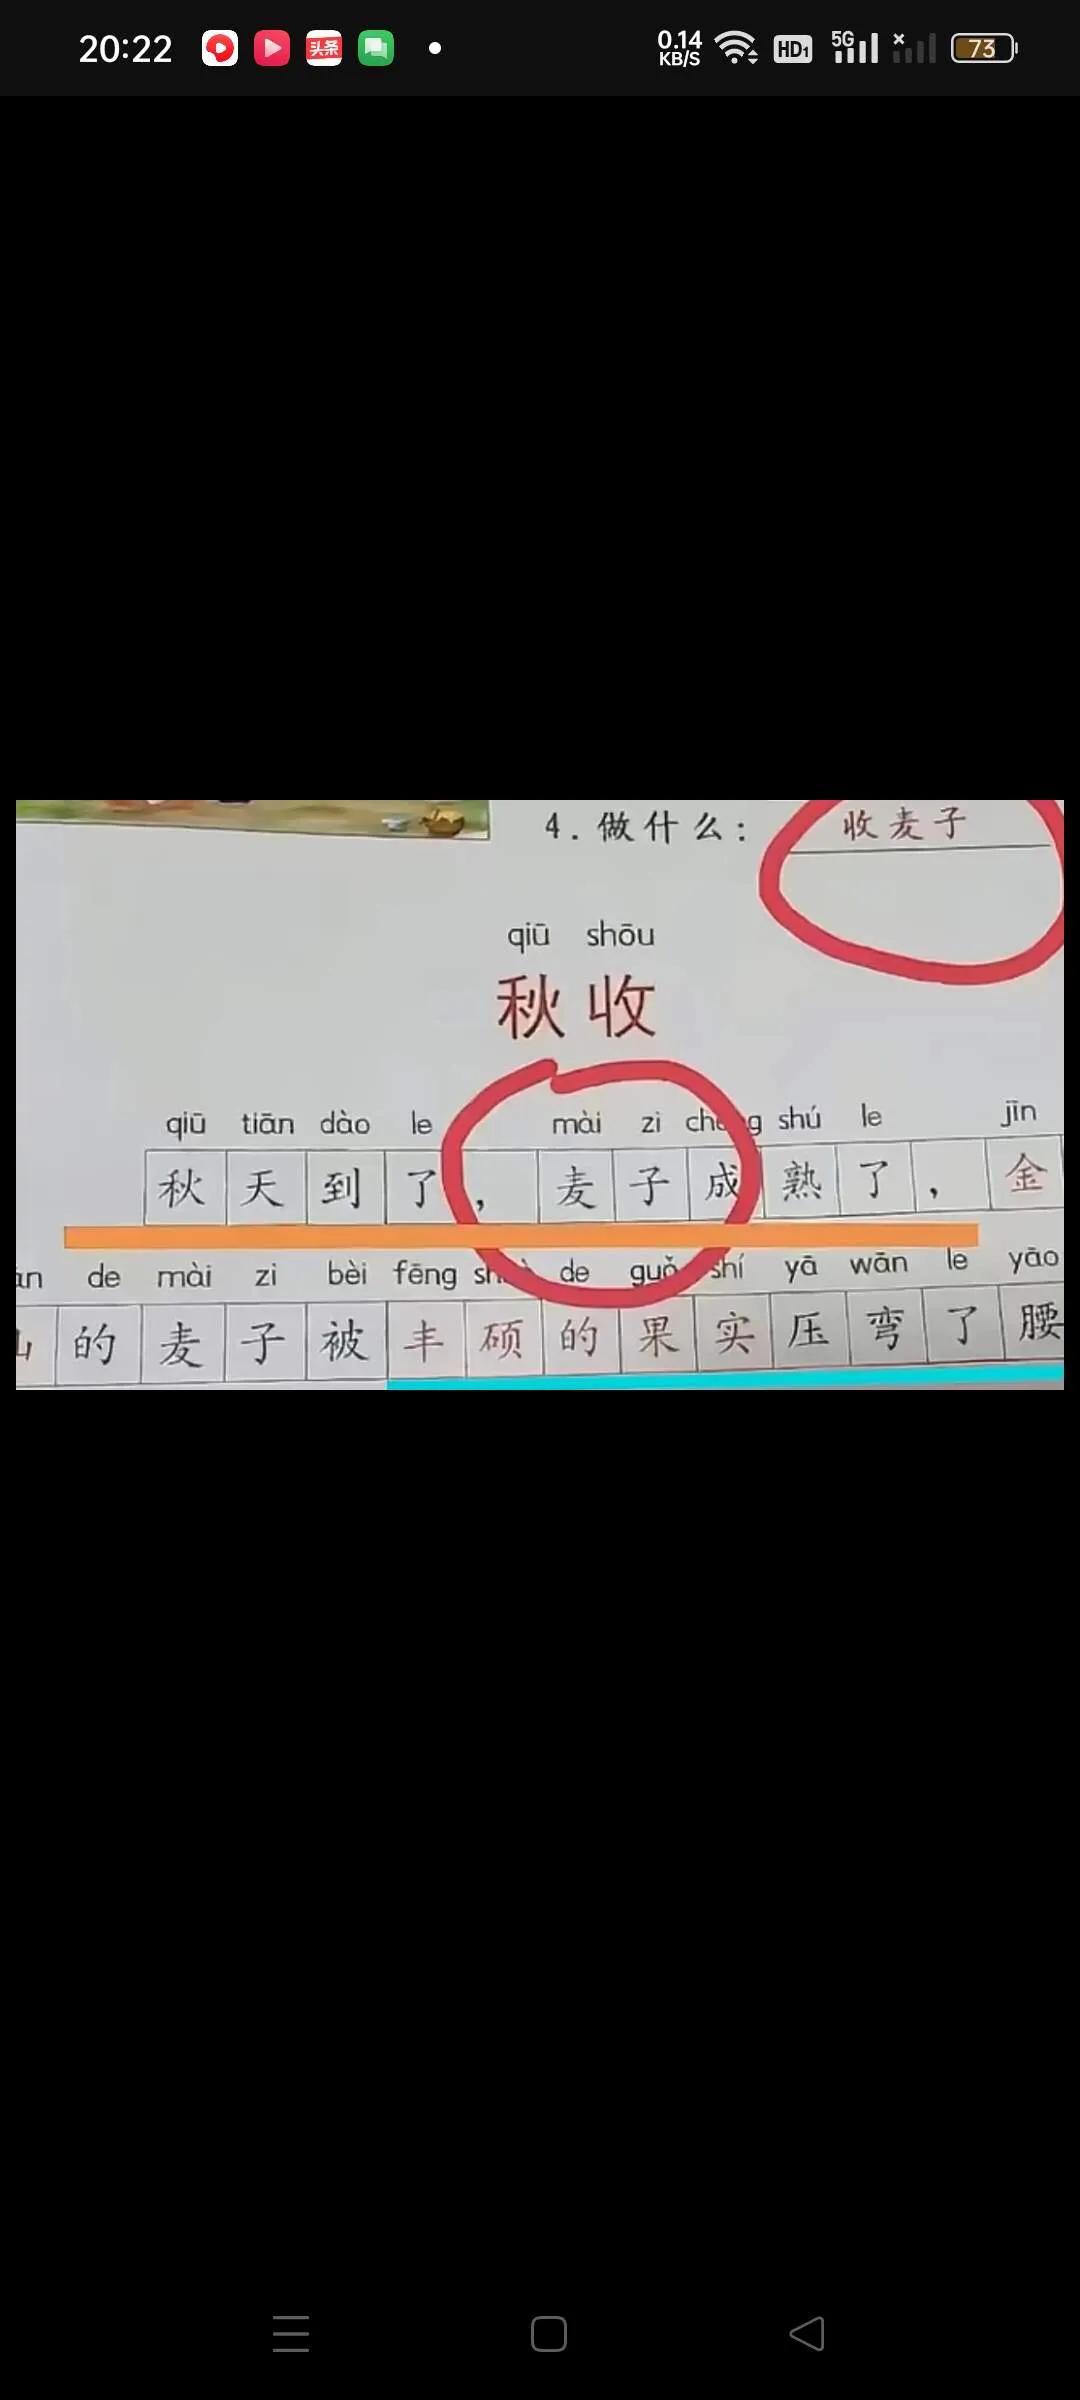 20:22 头条 0.14 KB/S HD1 5G 73
4.做什么: 收麦子
qiū shōu
秋收
qiū tiān dào le mài zi shú le jīn
秋天到了，麦子成熟了，金
de mài zi bèi fēng de guǒ shí yā wān le yāo
的麦子被丰硕的果实压弯了腰